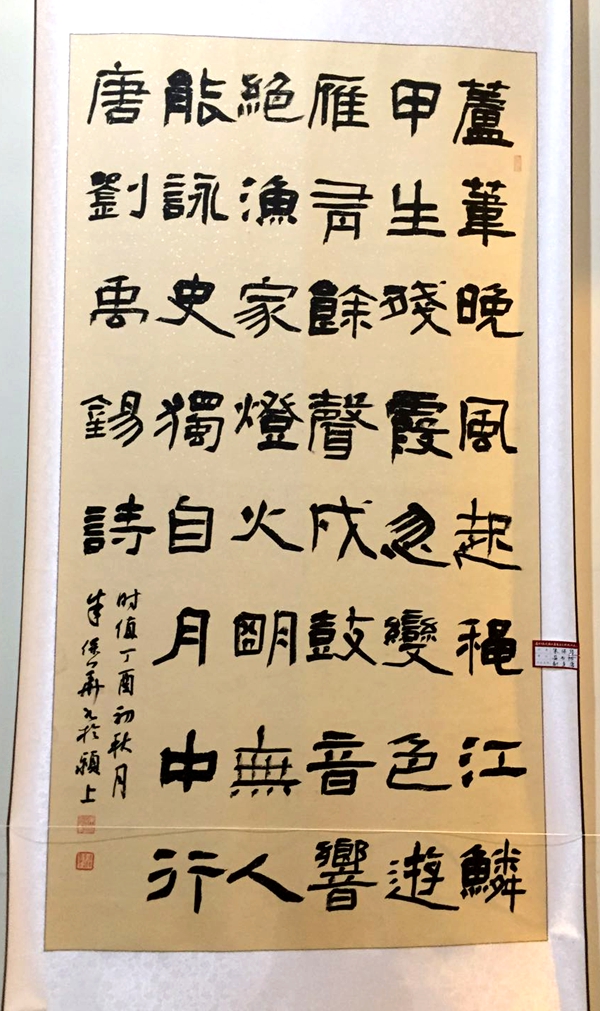 蘆葦晚風起穐江鱗
甲生殘霞忽變色遊
雁有餘聲戍鼓音響
絕漁家燈火朙無人
能詠史獨自月中行
唐劉禹錫詩
时值丁酉初秋月
朱保華书於颍上